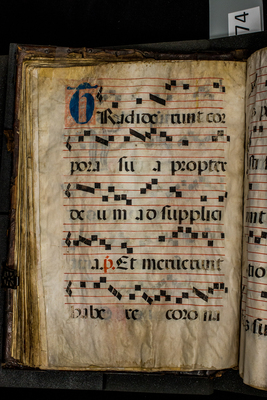 74
TRadiderunt cor
pora su a propter
deum ad supplici
a. p. Et meruerunt
habe re coro na